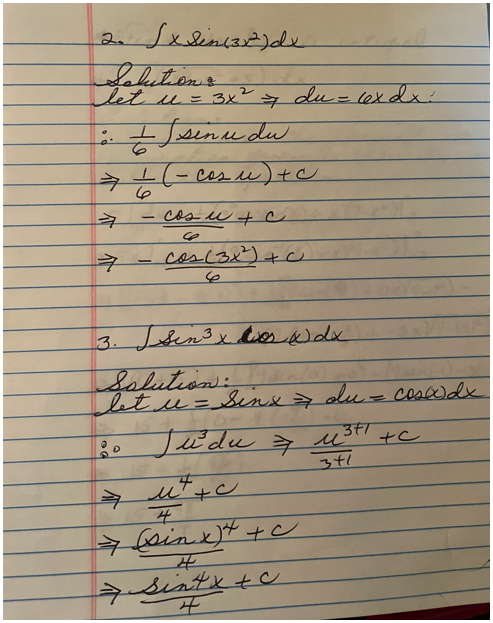 2. ∫x sin(3x²)dx
Solution:
let u = 3x² ⇒ du = 6x dx.
∴ 1/6 ∫sin u du
⇒ 1/6 (- cos u) + c
⇒ - cos u/6 + c
⇒ - cos(3x²)/6 + c
3. ∫sin³x cos(x)dx
Solution:
let u = sinx ⇒ du = cos(x)dx
∴ ∫u³du ⇒ u³⁺¹/3+1 + c
⇒ u⁴/4 + c
⇒ (sin x)⁴/4 + c
⇒ sin⁴x/4 + c